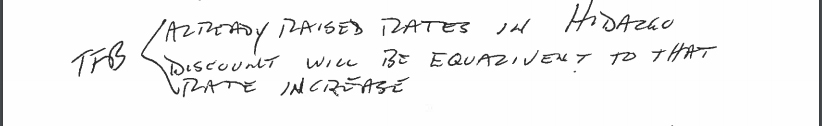 ALREADY RAISED RATES IN HIDALGO
TFB DISCOUNT WILL BE EQUALIVENT TO THAT
RATE INCREASE